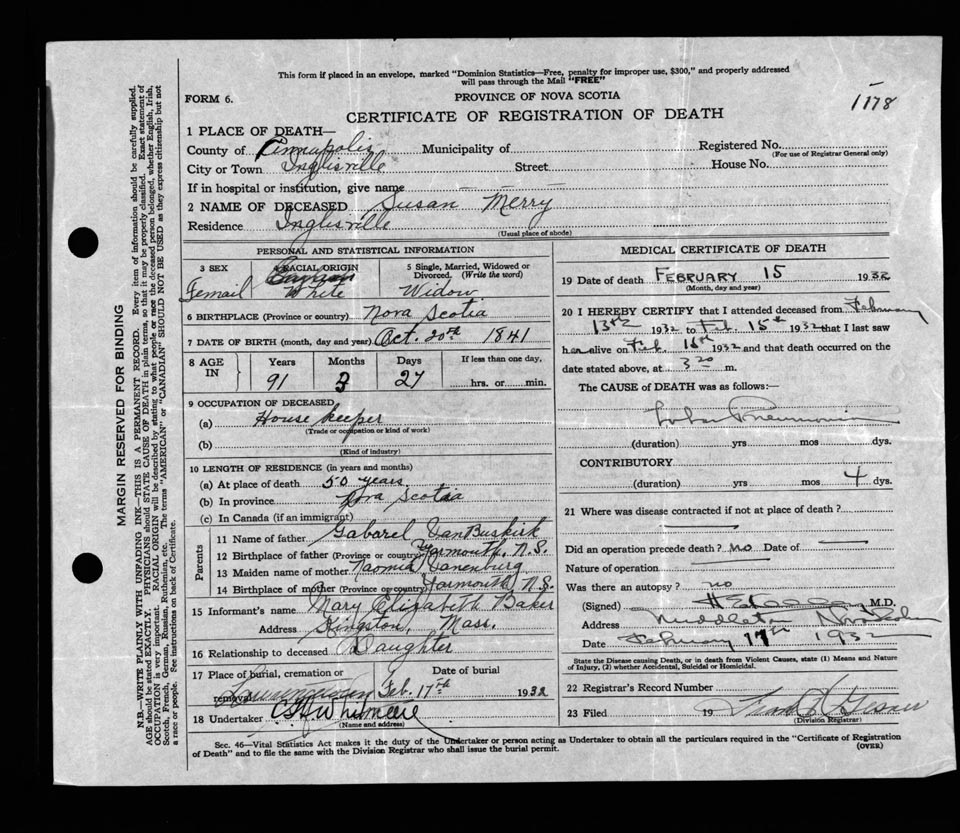 This form if placed in an envelope, marked "Dominion Statistics—Free, penalty for improper use, $300," and properly addressed
will pass through the Mail "FREE"
FORM 6.
PROVINCE OF NOVA SCOTIA
1178
CERTIFICATE OF REGISTRATION OF DEATH
1 PLACE OF DEATH—
County of Annapolis Municipality of Registered No.
(For use of Registrar General only)
City or Town Inglisville Street House No.
If in hospital or institution, give name
2 NAME OF DECEASED Susan Merry
Residence Inglisville
(Usual place of abode)
PERSONAL AND STATISTICAL INFORMATION
3 SEX 4 RACIAL ORIGIN 5 Single, Married, Widowed or Divorced. (Write the word)
Femail White Widow
6 BIRTHPLACE (Province or country) Nova Scotia
7 DATE OF BIRTH (month, day and year) Oct. 20th 1841
8 AGE IN Years Months Days If less than one day,
91 3 27 hrs. or min.
9 OCCUPATION OF DECEASED
(a) House keeper
(Trade or occupation or kind of work)
(b)
(Kind of industry)
10 LENGTH OF RESIDENCE (in years and months)
(a) At place of death 50 years.
(b) In province Nova Scotia
(c) In Canada (if an immigrant)
Parents
11 Name of father Gabarel VanBuskirk
12 Birthplace of father (Province or country) Yarmouth, N.S.
13 Maiden name of mother Naomia Vanenburg
14 Birthplace of mother (Province or country) Yarmouth N.S.
15 Informant's name Mary Elizabeth Baker
Address Kingston, Mass.
16 Relationship to deceased Daughter
17 Place of burial, cremation or removal Date of burial
Feb. 17th 1932
18 Undertaker
(Name and address)
MEDICAL CERTIFICATE OF DEATH
19 Date of death FEBRUARY 15 1932
(Month, day and year)
20 I HEREBY CERTIFY that I attended deceased from February
13th 1932 to Feb. 15th 1932 that I last saw
her alive on Feb. 1932 and that death occurred on the
date stated above, at 3 20 m.
The CAUSE OF DEATH was as follows:—
Lobar Pneumonia
(duration) yrs mos dys.
CONTRIBUTORY
(duration) yrs. mos 4 dys.
21 Where was disease contracted if not at place of death?
Did an operation precede death? no Date of
Nature of operation
Was there an autopsy? no
(Signed) M.D.
Address Middleton Nova Scotia
Date February 17th 1932
State the Disease causing Death, or in death from Violent Causes, state (1) Means and Nature
of Injury, (2) whether Accidental, Suicidal or Homicidal.
22 Registrar's Record Number
23 Filed 19
(Division Registrar)
Sec. 46—Vital Statistics Act makes it the duty of the Undertaker or person acting as Undertaker to obtain all the particulars required in the "Certificate of Registration
of Death" and to file the same with the Division Registrar who shall issue the burial permit.
(OVER)
MARGIN RESERVED FOR BINDING
N.B.—WRITE PLAINLY WITH UNFADING INK—THIS IS A PERMANENT RECORD. Every item of information should be carefully supplied.
AGE should be stated EXACTLY. PHYSICIANS should STATE CAUSE OF DEATH in plain terms, so that it may be properly classified. Exact statement of
OCCUPATION is very important. RACIAL ORIGIN will be described by stating to what people or race the deceased person belonged, whether English, Irish,
Scotch, French, German, Russian, Ruthenian, etc. The terms "AMERICAN" or "CANADIAN" SHOULD NOT BE USED as they express citizenship but not
a race or people. See instructions on back of Certificate.